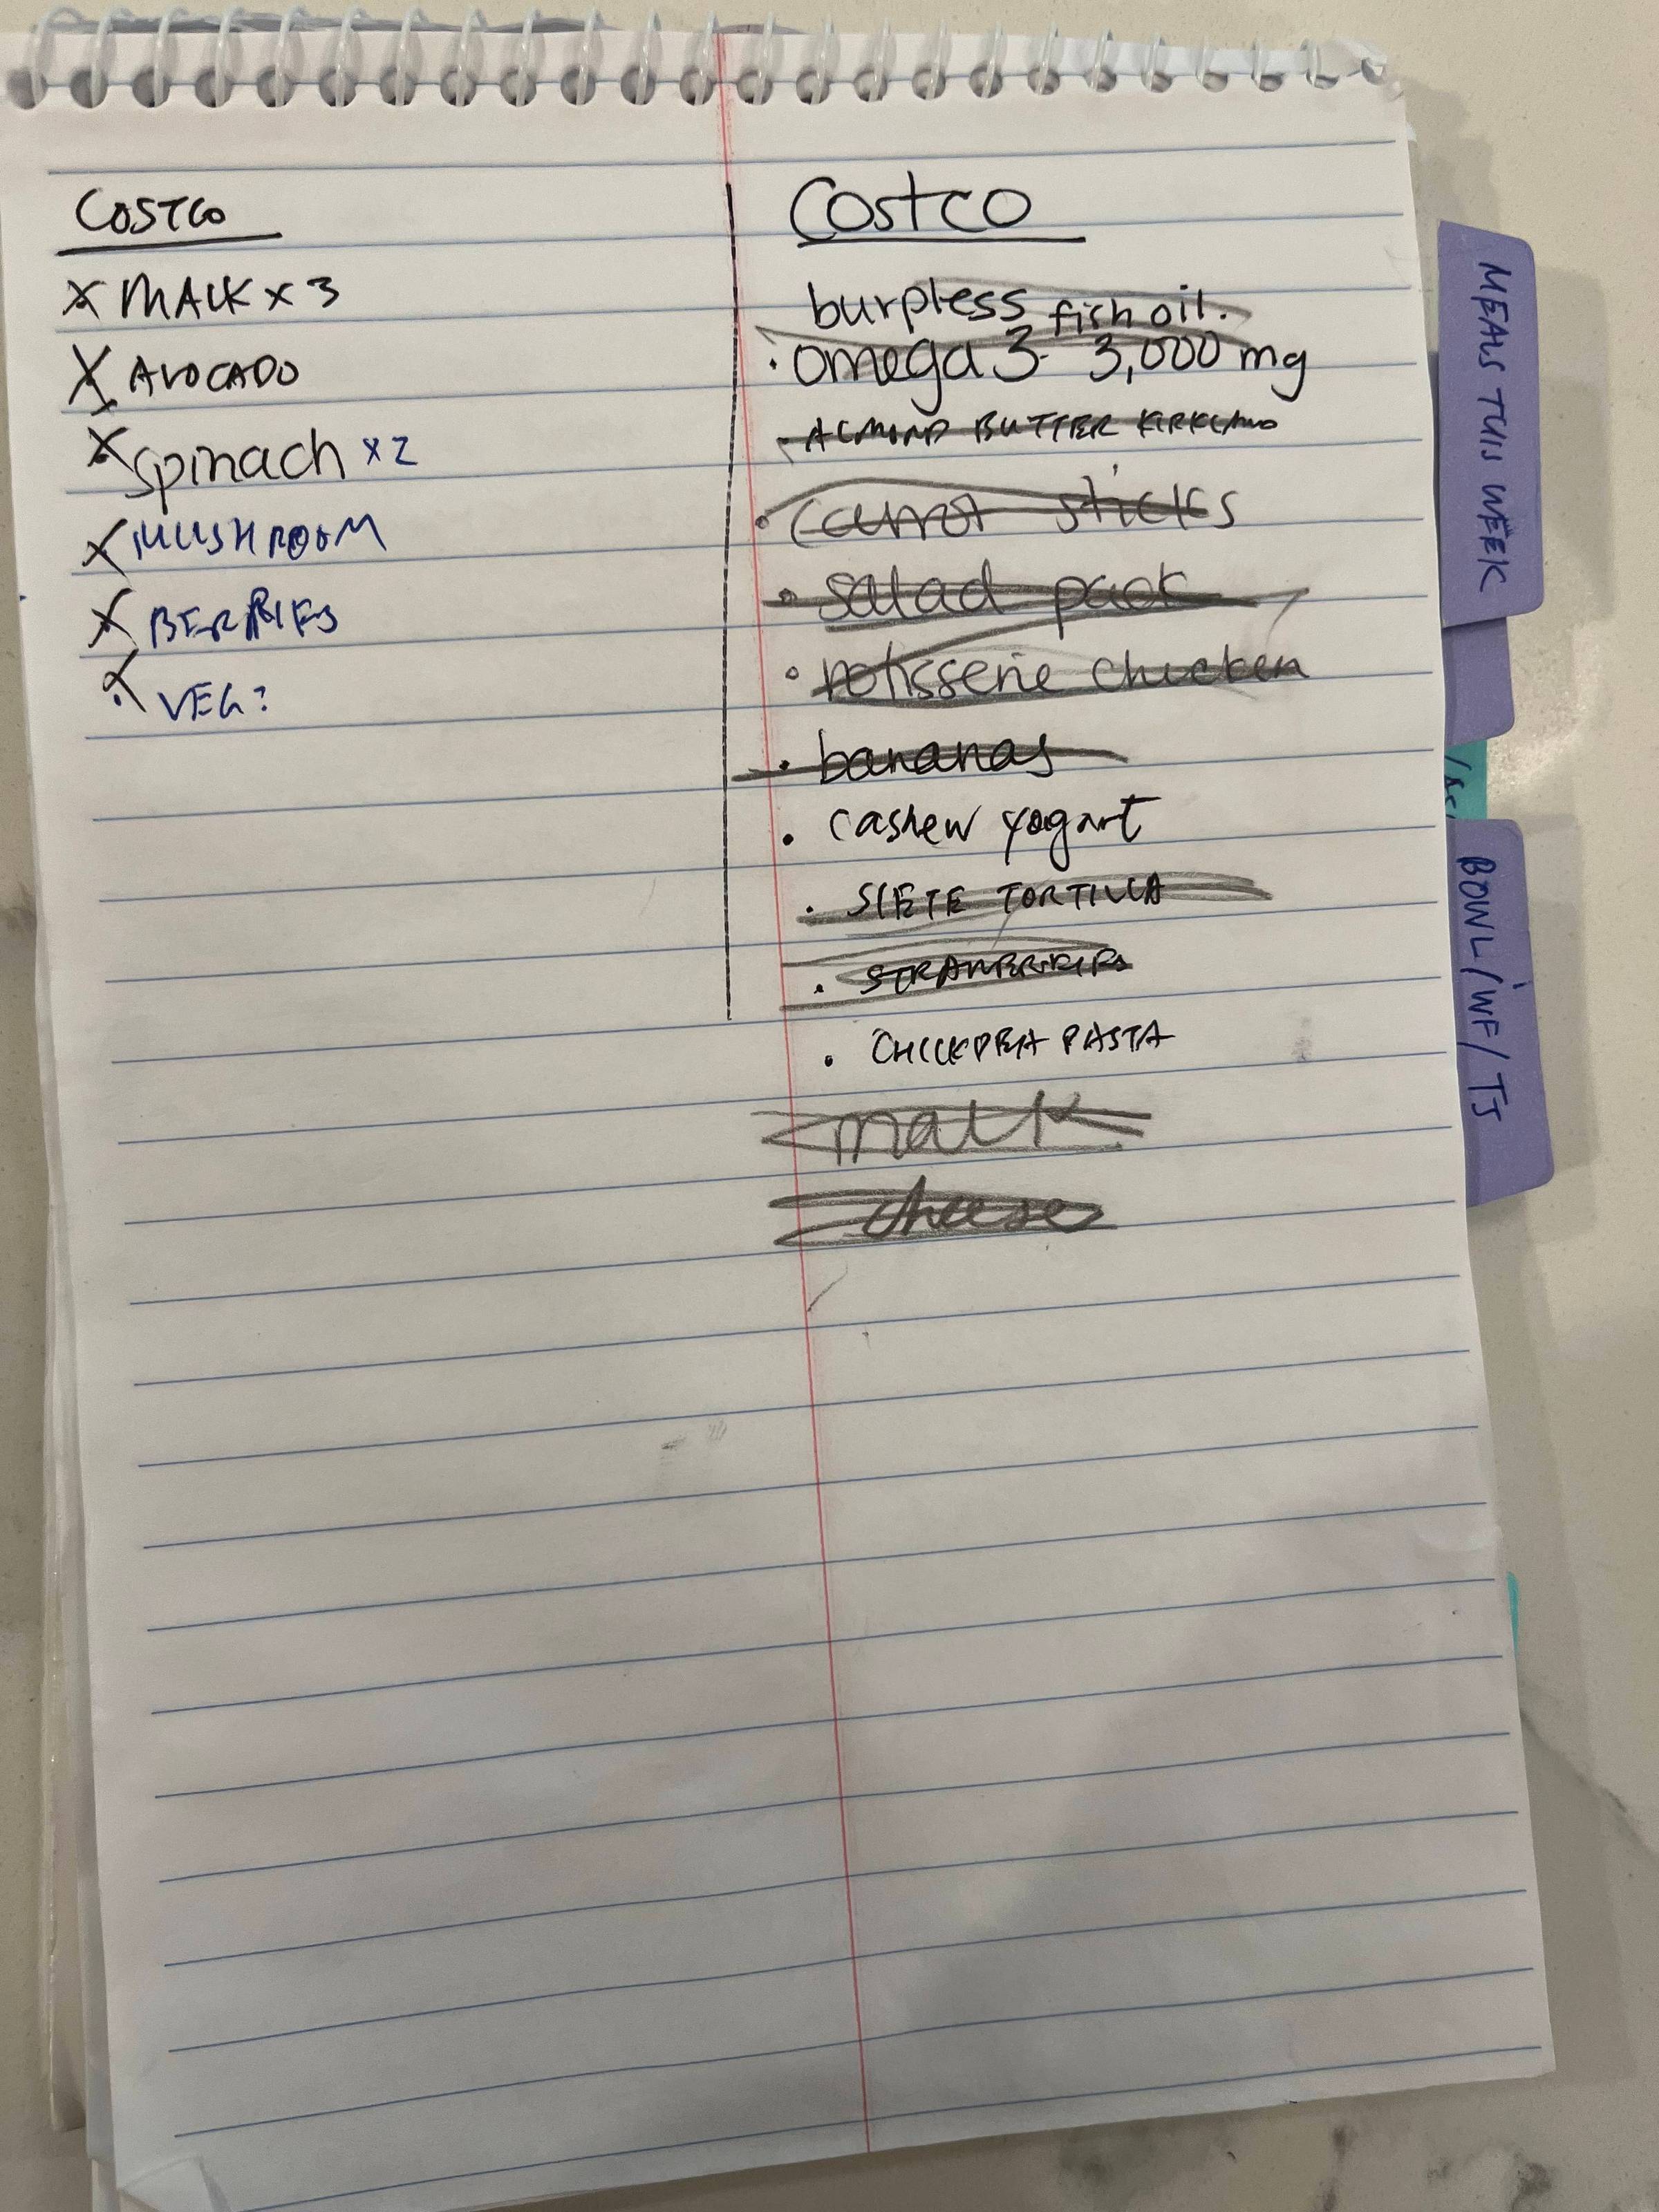 COSTCO
X MALK x 3
X AVOCADO
X spinach x2
X MUSHROOM
X BERRIES
X VEG?
Costco
burpless fish oil.
• omega 3 - 3,000 mg
• ALMOND BUTTER KIRKLAND
• carrot sticks
• salad pack
• rotisserie chicken
• bananas
• cashew yogart
• SIETE TORTILLA
• STRAWBERRIES
• CHICKPEA PASTA
malk
cheese
MEALS THIS WEEK
BOWL/WF/TJ